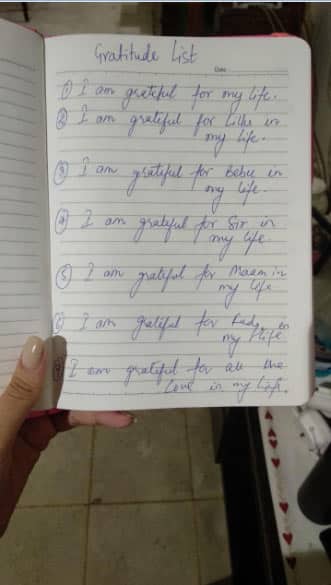 Gratitude List
Date
① I am grateful for my life.
② I am grateful for in
my life.
③ I am grateful for bebu in
my life.
④ I am grateful for Sir in
my life.
⑤ I am grateful for Maam in
my life
⑥ I am grateful for in
my life
I am grateful for all the
Love in my life.